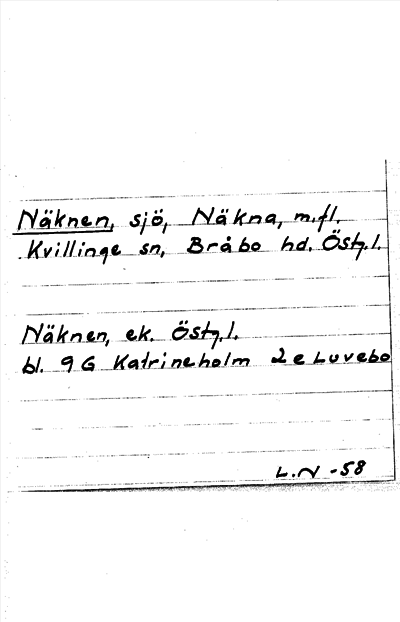 Näknen, sjö, Näkna, m.fl.
Kvillinge sn, Bråbo hd. Östg.l.
Näknen, ek. Östg.l.
bl. 9 G Katrineholm 2 e Luvebo
L.N -58